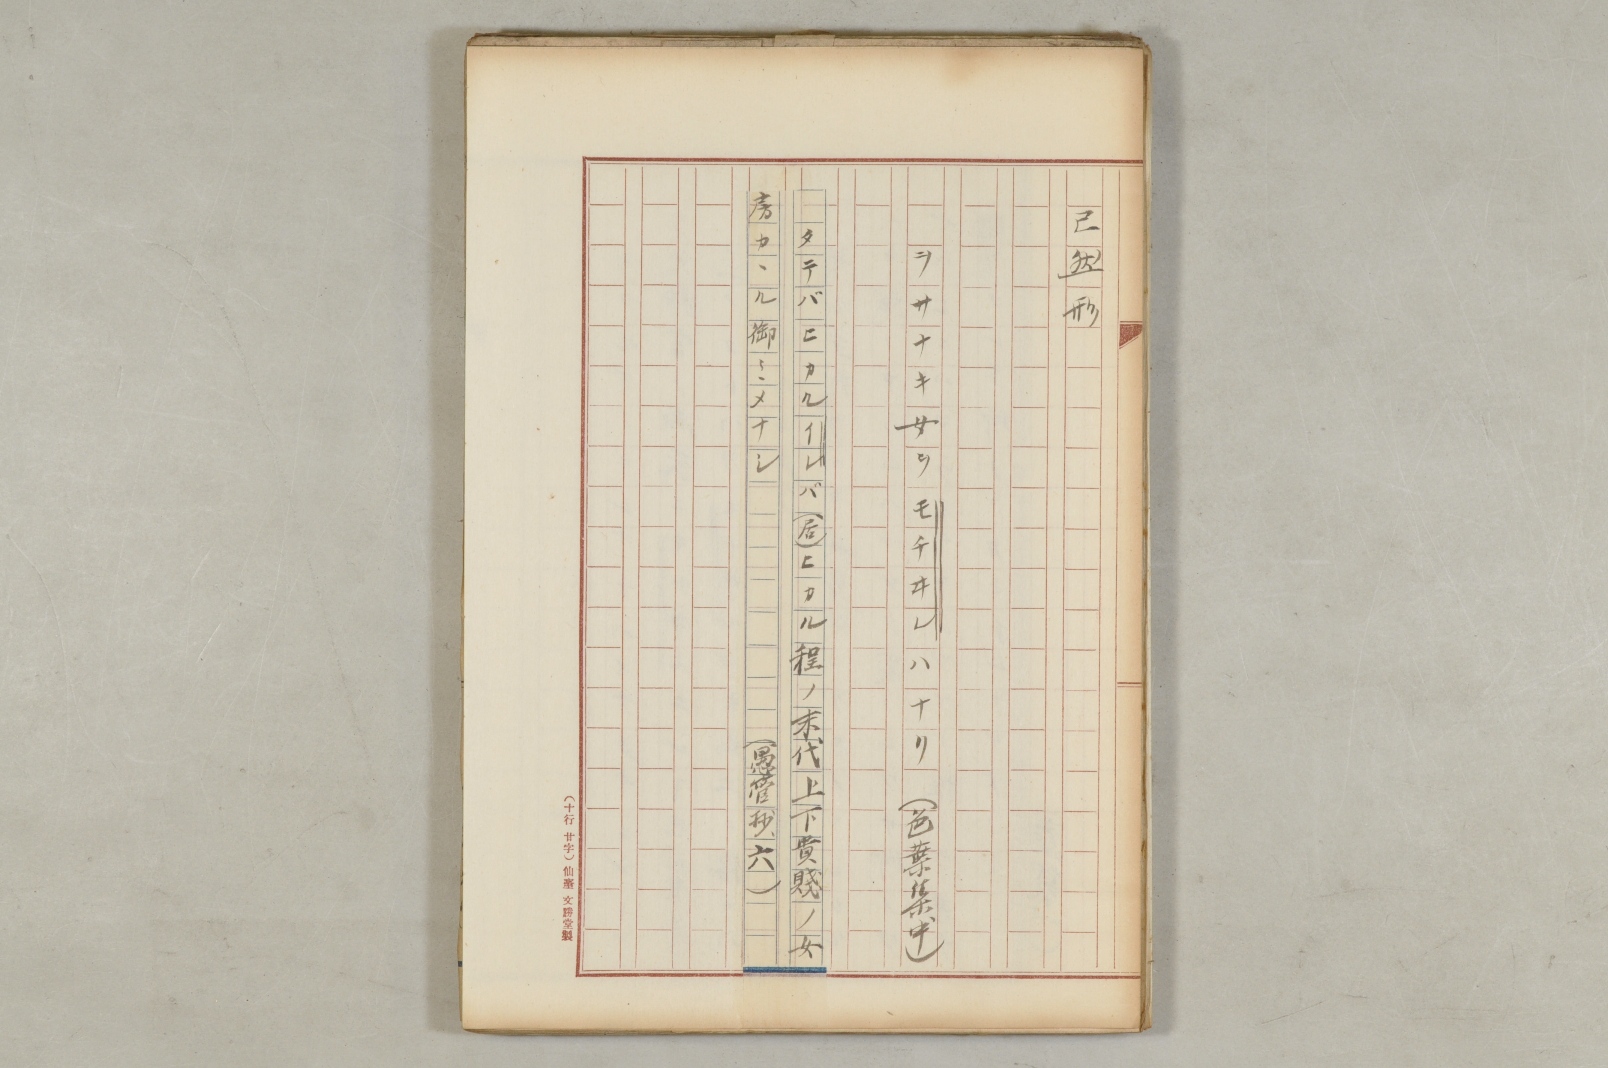 已然形
ヲサナキ女ヲモチヰレハナリ(色葉集中)
タテバヒカルイレバ(居)ヒカル程ノ末代上下貴賤ノ女
房カヽル御ミヽメナシ
(愚管抄、六)
(十行廿字)仙臺文勝堂製